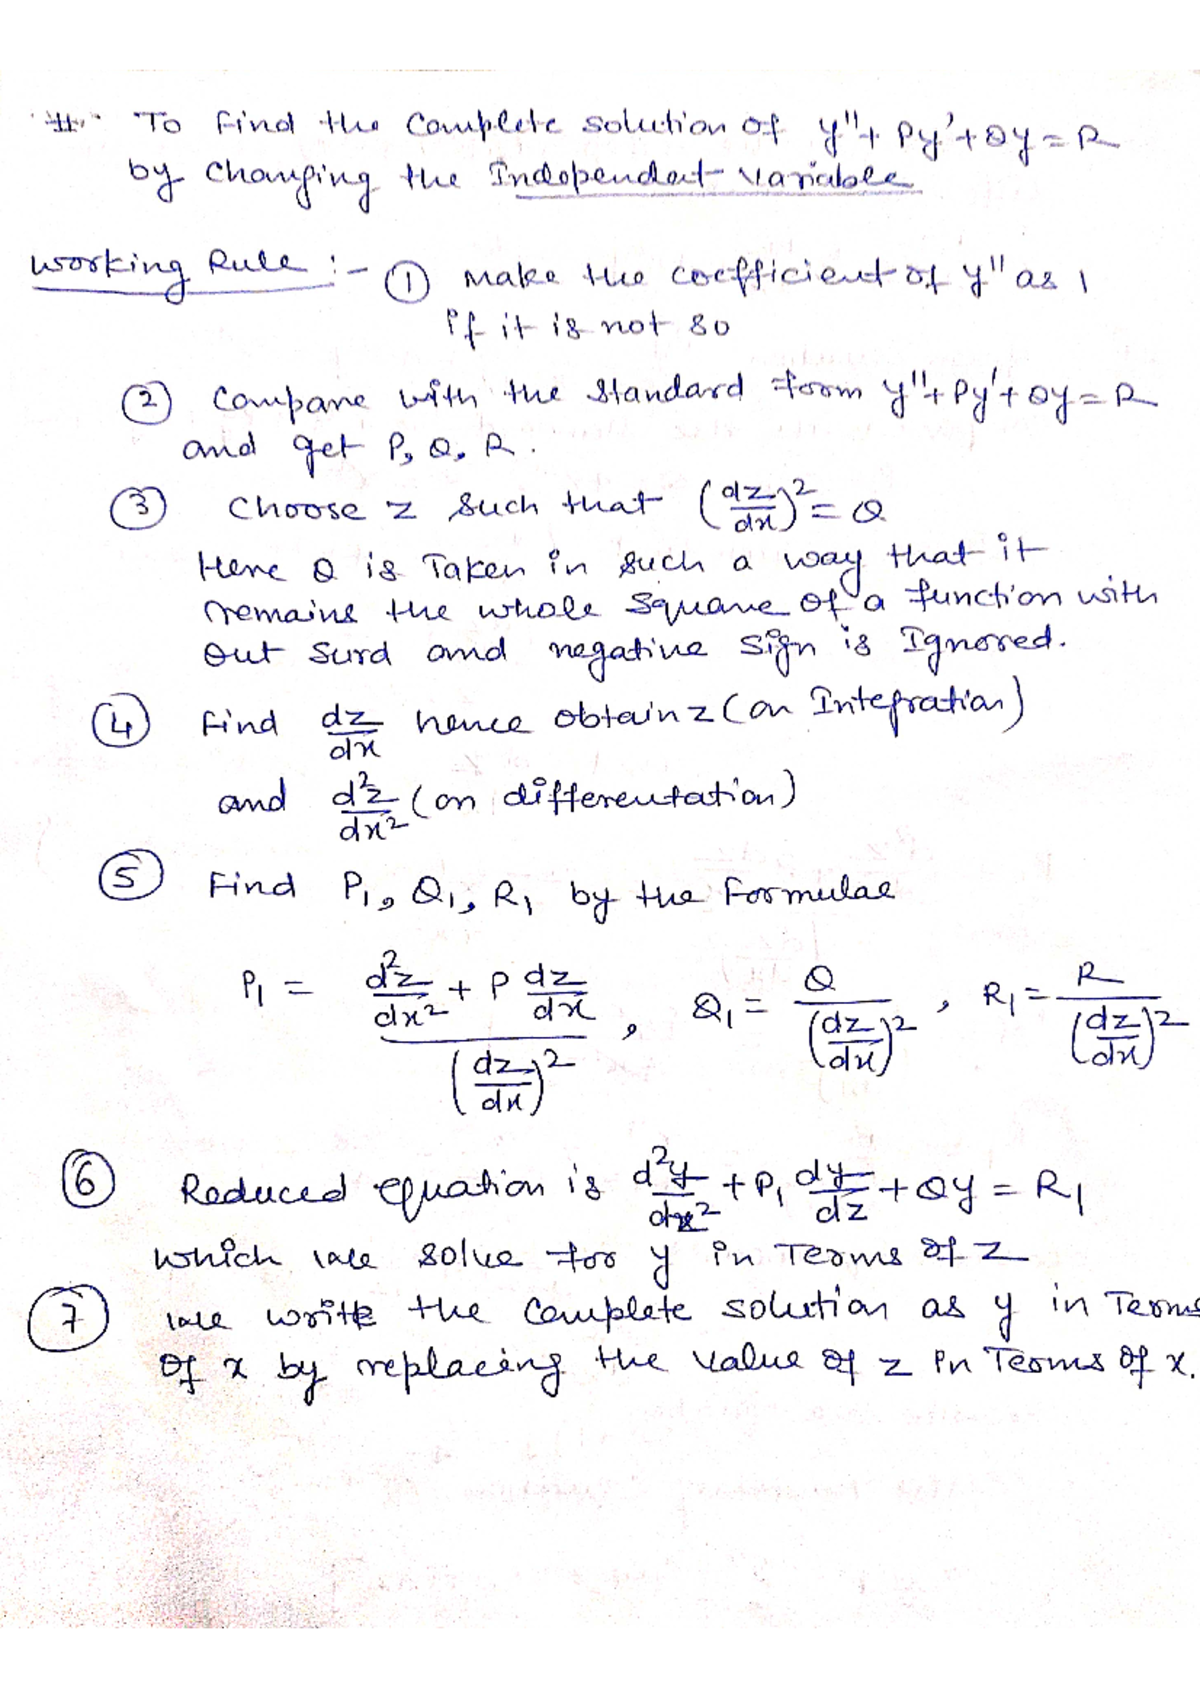 # To find the complete solution of y'' + Py' + Qy = R
by changing the Independent variable
Working Rule :- ① Make the coefficient of y'' as 1
if it is not so
② Compare with the standard form y'' + Py' + Qy = R
and get P, Q, R.
③ Choose z such that (dz/dx)² = Q
Here Q is Taken in such a way that it
remains the whole square of a function with
out surd and negative sign is Ignored.
④ Find dz/dx hence obtain z (on Integration)
and d²z/dx² (on differentation)
⑤ Find P₁, Q₁, R₁ by the Formulae
P₁ = (d²z/dx² + P dz/dx) / (dz/dx)², Q₁ = Q / (dz/dx)², R₁ = R / (dz/dx)²
⑥ Reduced equation is d²y/dz² + P₁ dy/dz + Qy = R₁
which we solve for y in Terms of z
⑦ we write the complete solution as y in Terms
of x by replacing the value of z in Terms of x.